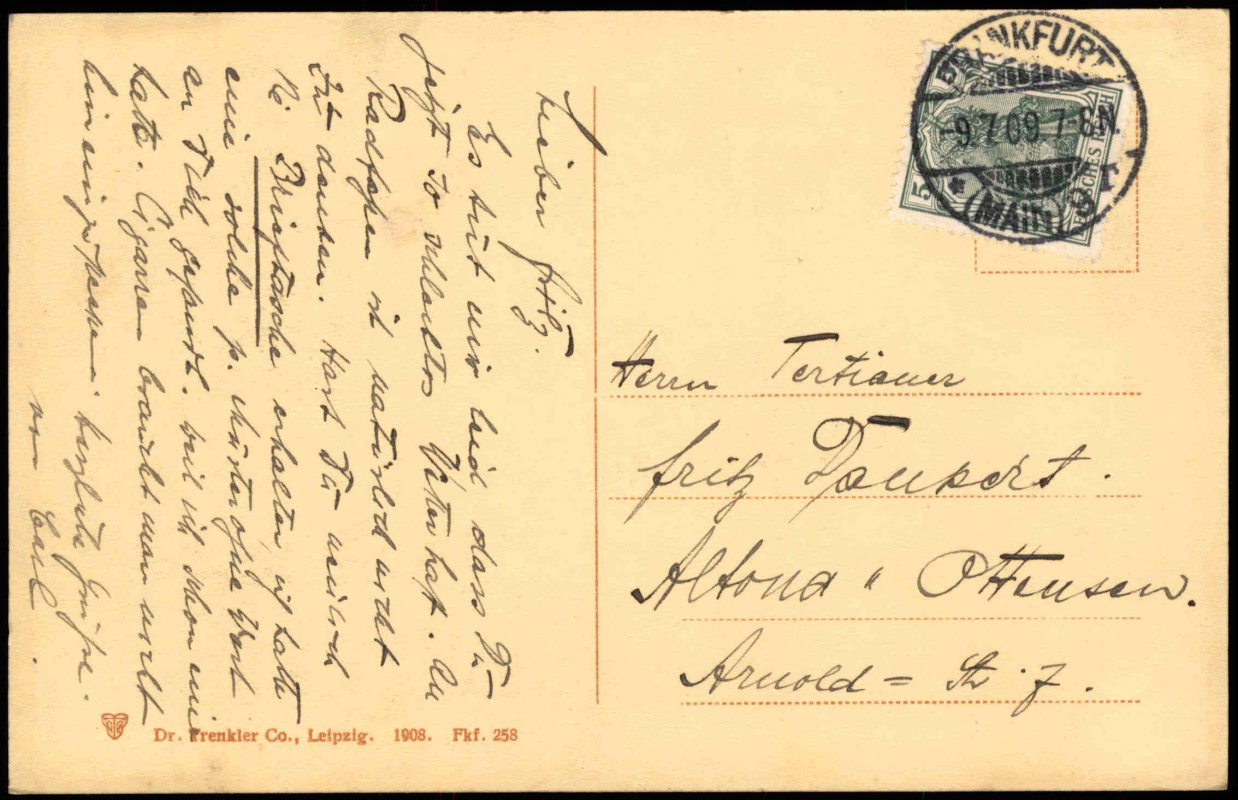 Lieber Fritz.
Es tut mir leid dass Du
jetzt so schlechtes Wetter hast. An
Radfahren ist natürlich nicht
zu denken. Hast Du neulich
die Brieftasche erhalten ich hatte
eine solche p. Muster ohne Wert
an Dich gesandt. weil ich schon eine
hatte. Cigarren braucht man nicht
hineinzustecken. herzliche Grüße.
von Carl.
FRANKFURT
-9.7.09.7-8N.
(MAIN)
5
Herrn Tertianer
Fritz
Altona " Ottensen.
Arnold = Str. 7.
Dr. Trenkler Co., Leipzig. 1908. Fkf. 258